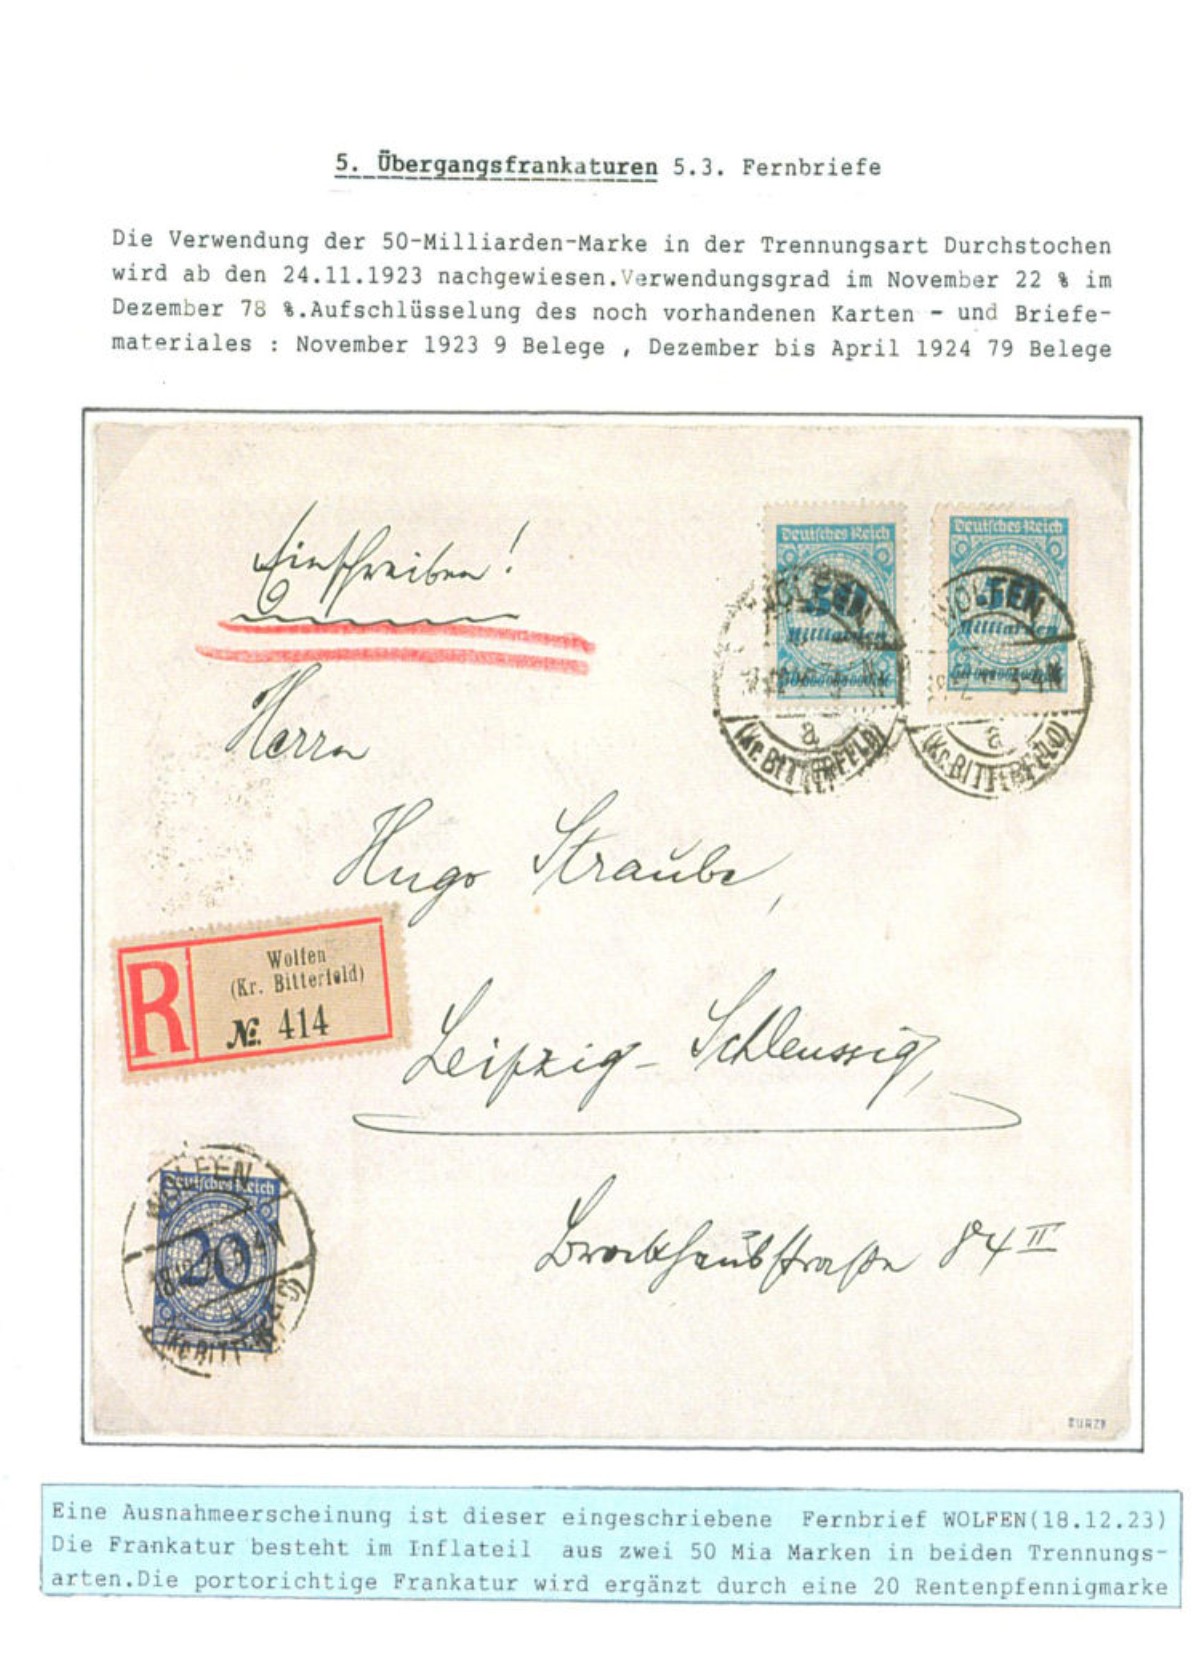 5. Übergangsfrankaturen 5.3. Fernbriefe
Die Verwendung der 50-Milliarden-Marke in der Trennungsart Durchstochen
wird ab den 24.11.1923 nachgewiesen.Verwendungsgrad im November 22 % im
Dezember 78 %.Aufschlüsselung des noch vorhandenen Karten - und Briefe-
materiales : November 1923 9 Belege , Dezember bis April 1924 79 Belege
Einschreiben!
Deutsches Reich
50
Milliarden
WOLFEN
a
(Kr. BITTERFELD)
Deutsches Reich
50
Milliarden
WOLFEN
a
(Kr. BITTERFELD)
Herrn
Hugo Straube,
R
Wolfen
(Kr. Bitterfeld)
№ 414
Leipzig-Schleussig,
WOLFEN
Deutsches Reich
20
Brockhausstraße 84 II
Eine Ausnahmeerscheinung ist dieser eingeschriebene Fernbrief WOLFEN(18.12.23)
Die Frankatur besteht im Inflateil aus zwei 50 Mia Marken in beiden Trennungs-
arten.Die portorichtige Frankatur wird ergänzt durch eine 20 Rentenpfennigmarke